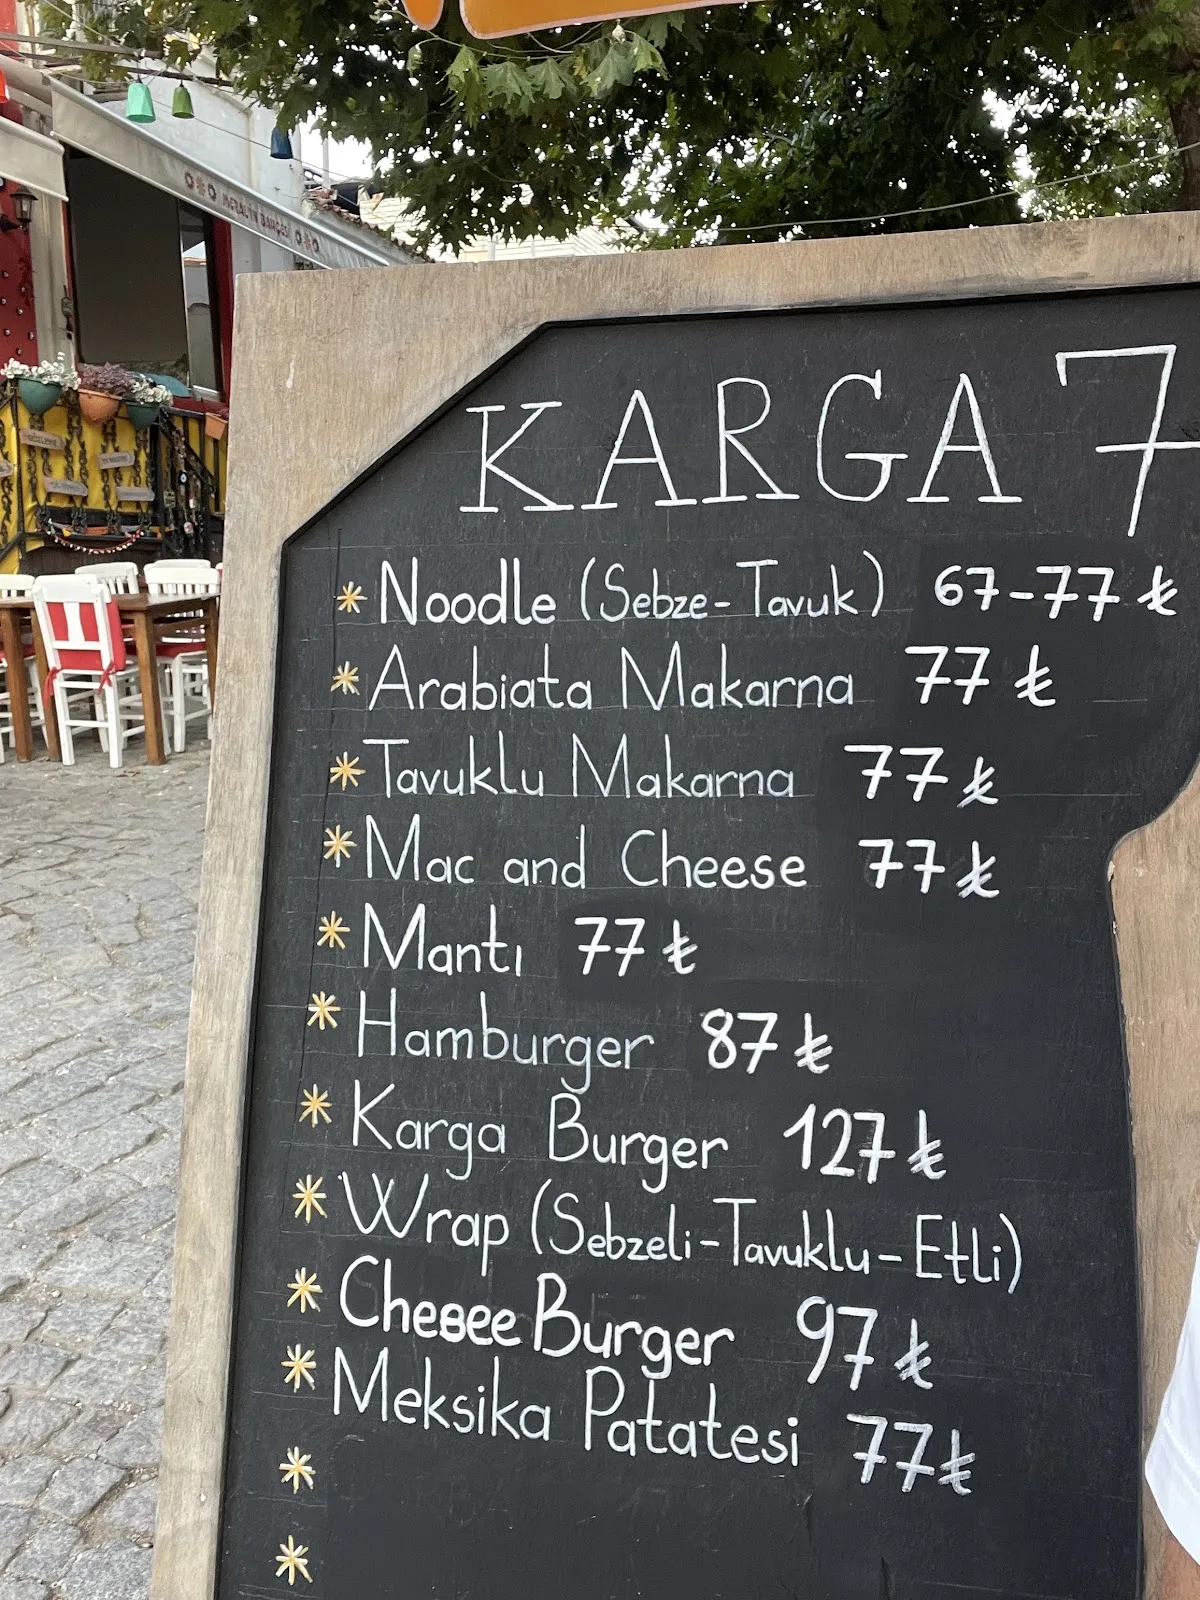 MERAL'İN BAHÇESİ
KARGA 7
Noodle (Sebze-Tavuk) 67-77 ₺
Arabiata Makarna 77 ₺
Tavuklu Makarna 77 ₺
Mac and Cheese 77 ₺
Mantı 77 ₺
Hamburger 87 ₺
Karga Burger 127 ₺
Wrap (Sebzeli-Tavuklu-Etli)
Chesee Burger 97 ₺
Meksika Patatesi 77 ₺